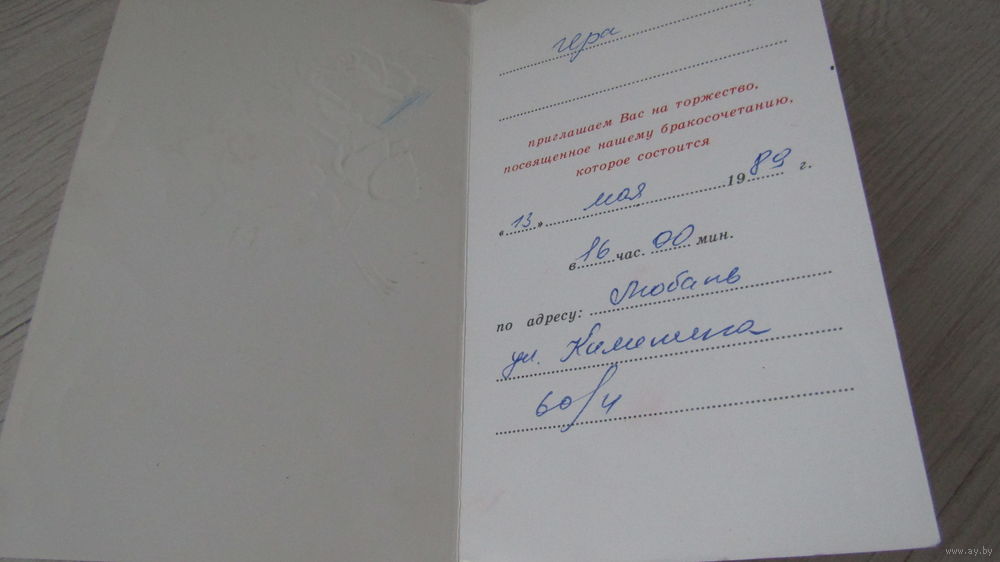 приглашаем Вас на торжество,
посвященное нашему бракосочетанию,
которое состоится
«13» мая 1989 г.
в 16 час. 00 мин.
по адресу: Любань
ул.
60/4
www.ay.by